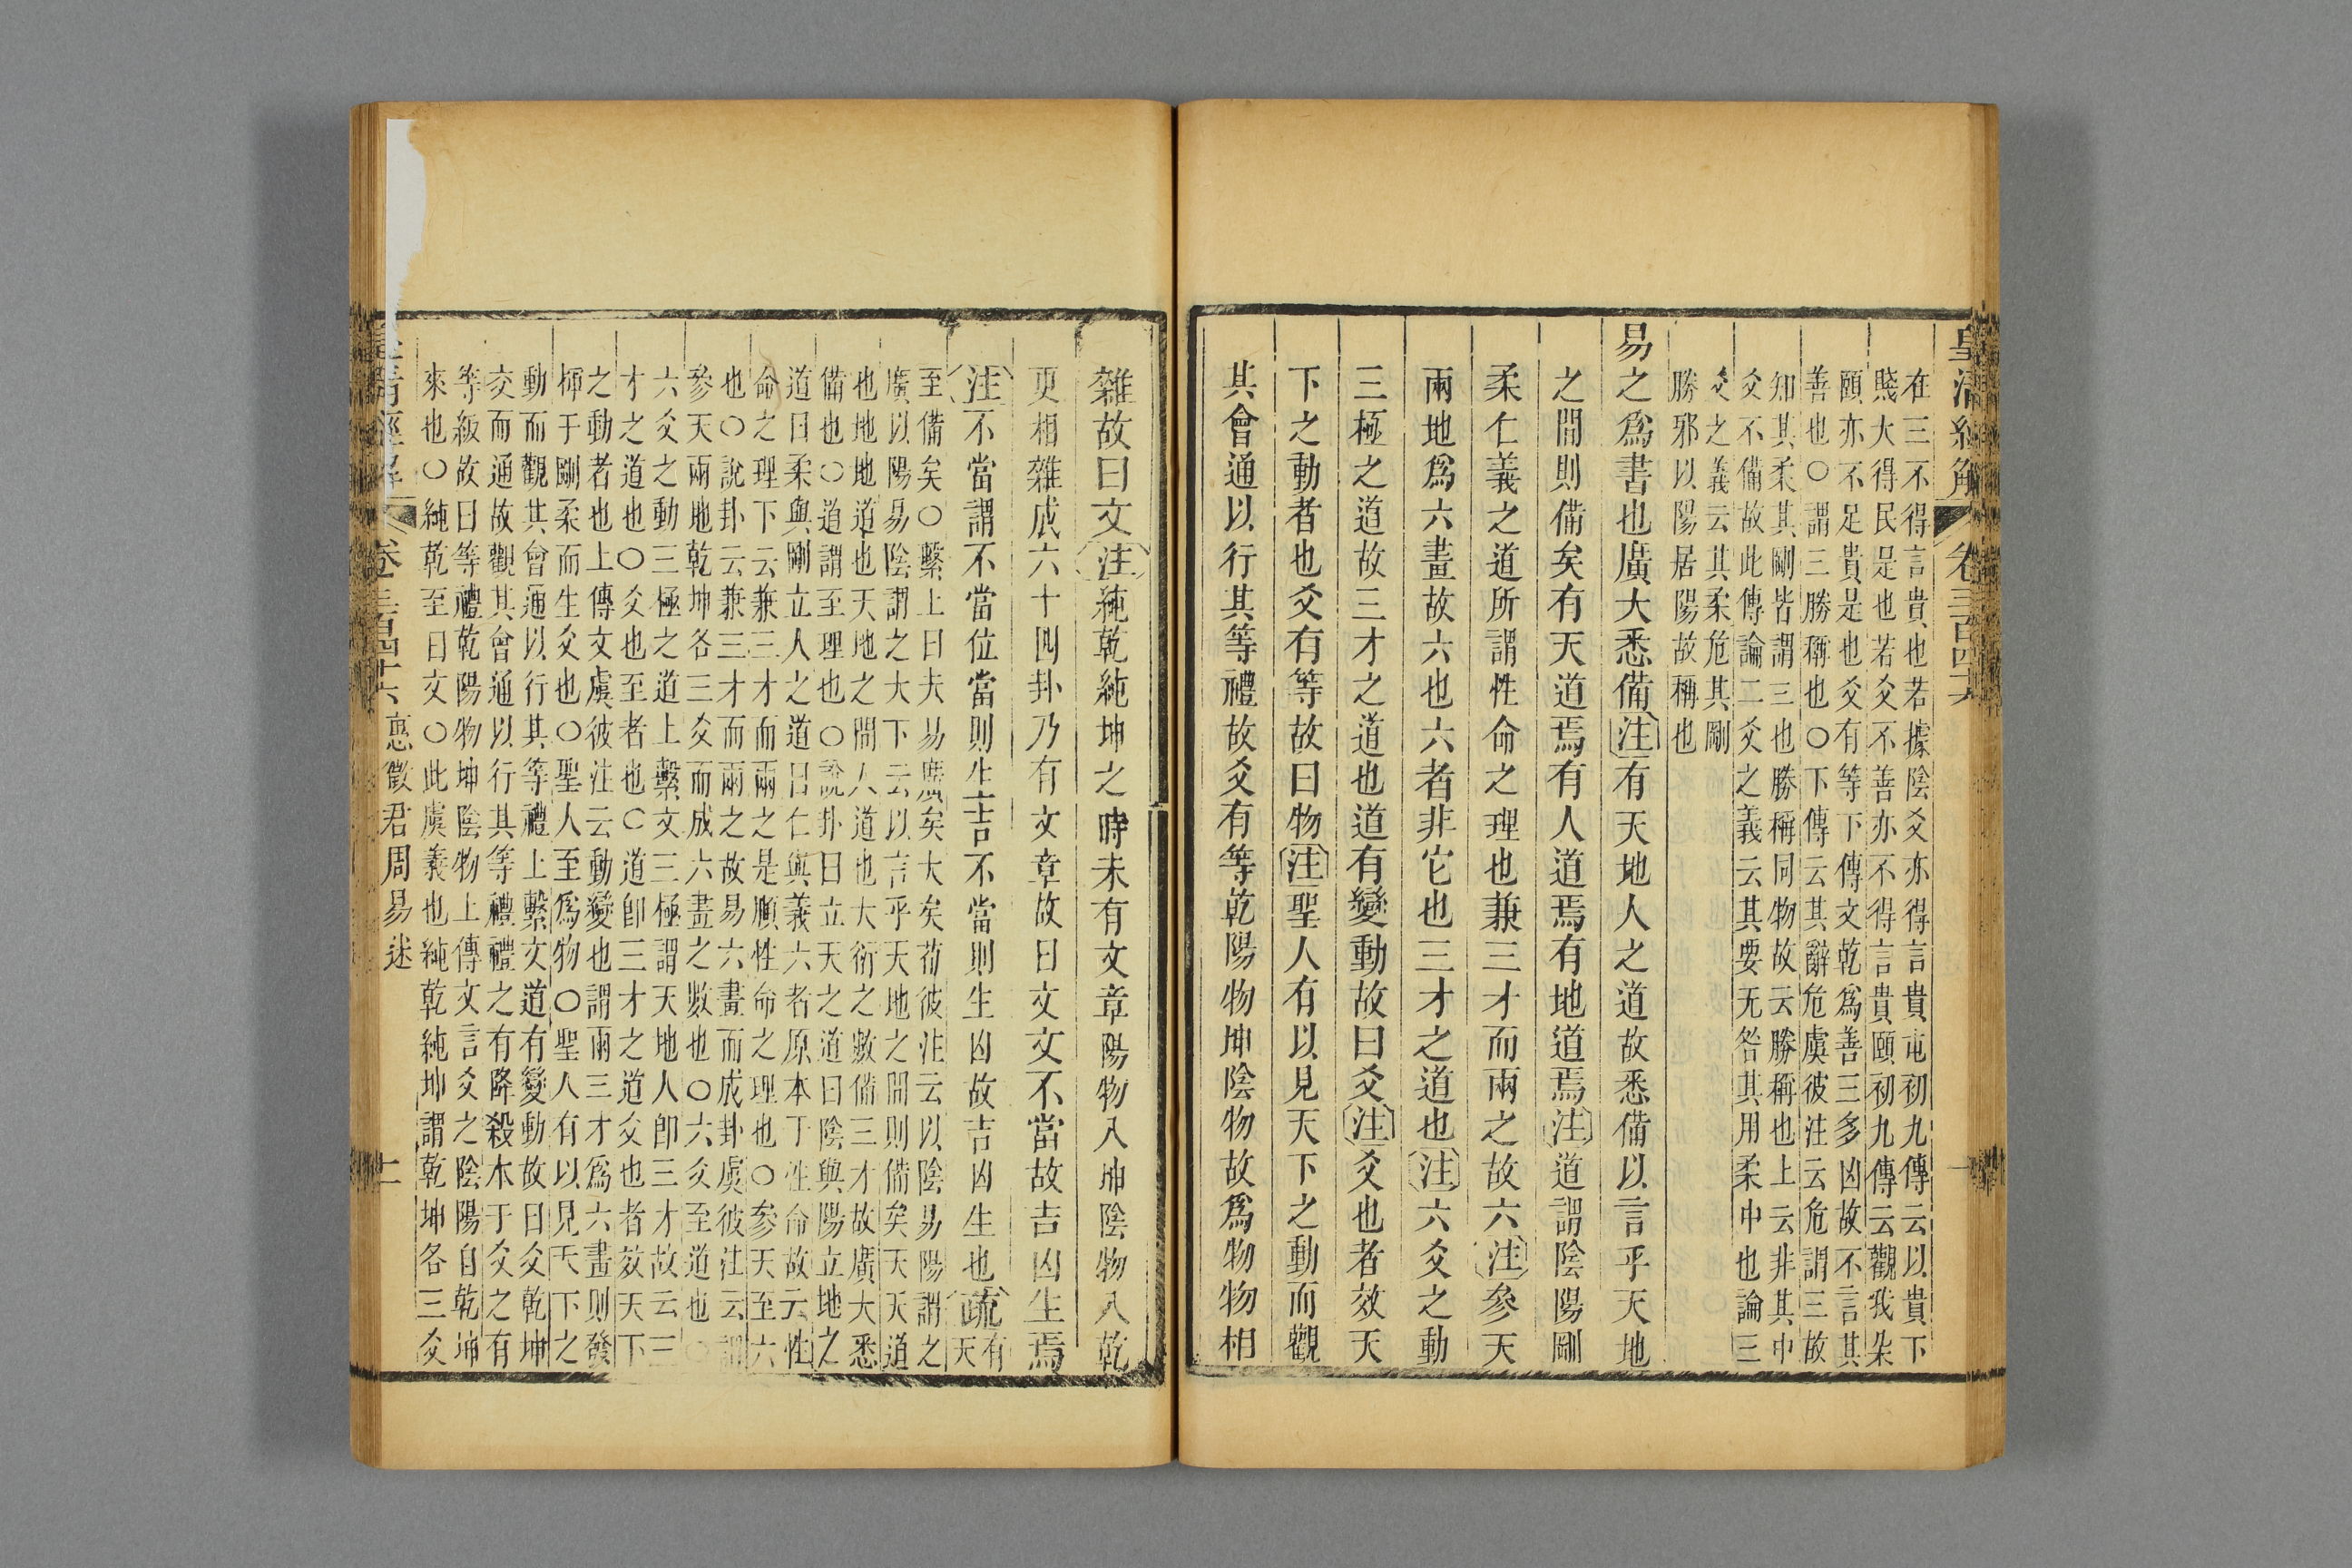 皇清經解 卷三百四十六 一
在三不得言貴也若據陰爻亦得言貴屯初九傳云以貴下
賤大得民是也若爻不善亦不得言貴頤初九傳云觀我朵
頤亦不足貴是也爻有等下傳文乾爲善三多凶故不言其
善也○謂三勝稱也○下傳云其辭危虞彼注云危謂三故
知其柔其剛皆謂三也勝稱同物故云勝稱也上云非其中
爻不備故此傳論二爻之義云其要无咎其用柔中也論三
爻之義云其柔危其剛
勝邪以陽居陽故稱也
易之爲書也廣大悉備注有天地人之道故悉備以言乎天地
之間則備矣有天道焉有人道焉有地道焉注道謂陰陽剛
柔仁義之道所謂性命之理也兼三才而兩之故六注參天
兩地爲六畫故六也六者非它也三才之道也注六爻之動
三極之道故三才之道也道有變動故曰爻注爻也者效天
下之動者也爻有等故曰物注聖人有以見天下之動而觀
其會通以行其等禮故爻有等乾陽物坤陰物故爲物物相
雜故曰文注純乾純坤之時未有文章陽物入坤陰物入乾
更相雜成六十四卦乃有文章故曰文文不當故吉凶生焉
注不當謂不當位當則生吉不當則生凶故吉凶生也疏有
天
至備矣○繫上曰夫易廣矣大矣荀彼注云以陰易陽謂之
廣以陽易陰謂之大下云以言乎天地之間則備矣天天道
也地地道也天地之間人道也大衍之數備三才故廣大悉
備也○道謂至理也○說卦曰立天之道曰陰與陽立地之
道曰柔與剛立人之道曰仁與義六者原本于性命故云性
命之理下云兼三才而兩之是順性命之理也○參天至六
也○說卦云兼三才而兩之故易六畫而成卦虞彼注云謂
參天兩地乾坤各三爻而成六畫之數也○六爻至道也○
六爻之動三極之道上繫文三極謂天地人卽三才故云三
才之道也○爻也至者也○道卽三才之道爻也者效天下
之動者也上傳文虞彼注云動變也謂兩三才爲六畫則發
揮于剛柔而生爻也○聖人至爲物○聖人有以見天下之
動而觀其會通以行其等禮上繫文道有變動故曰爻乾坤
交而通故觀其會通以行其等禮禮之有降殺本于爻之有
等級故曰等禮乾陽物坤陰物上傳文言爻之陰陽自乾坤
來也○純乾至曰文○此虞義也純乾純坤謂乾坤各三爻
皇清經解 卷三百四十六 惠徵君周易述 二